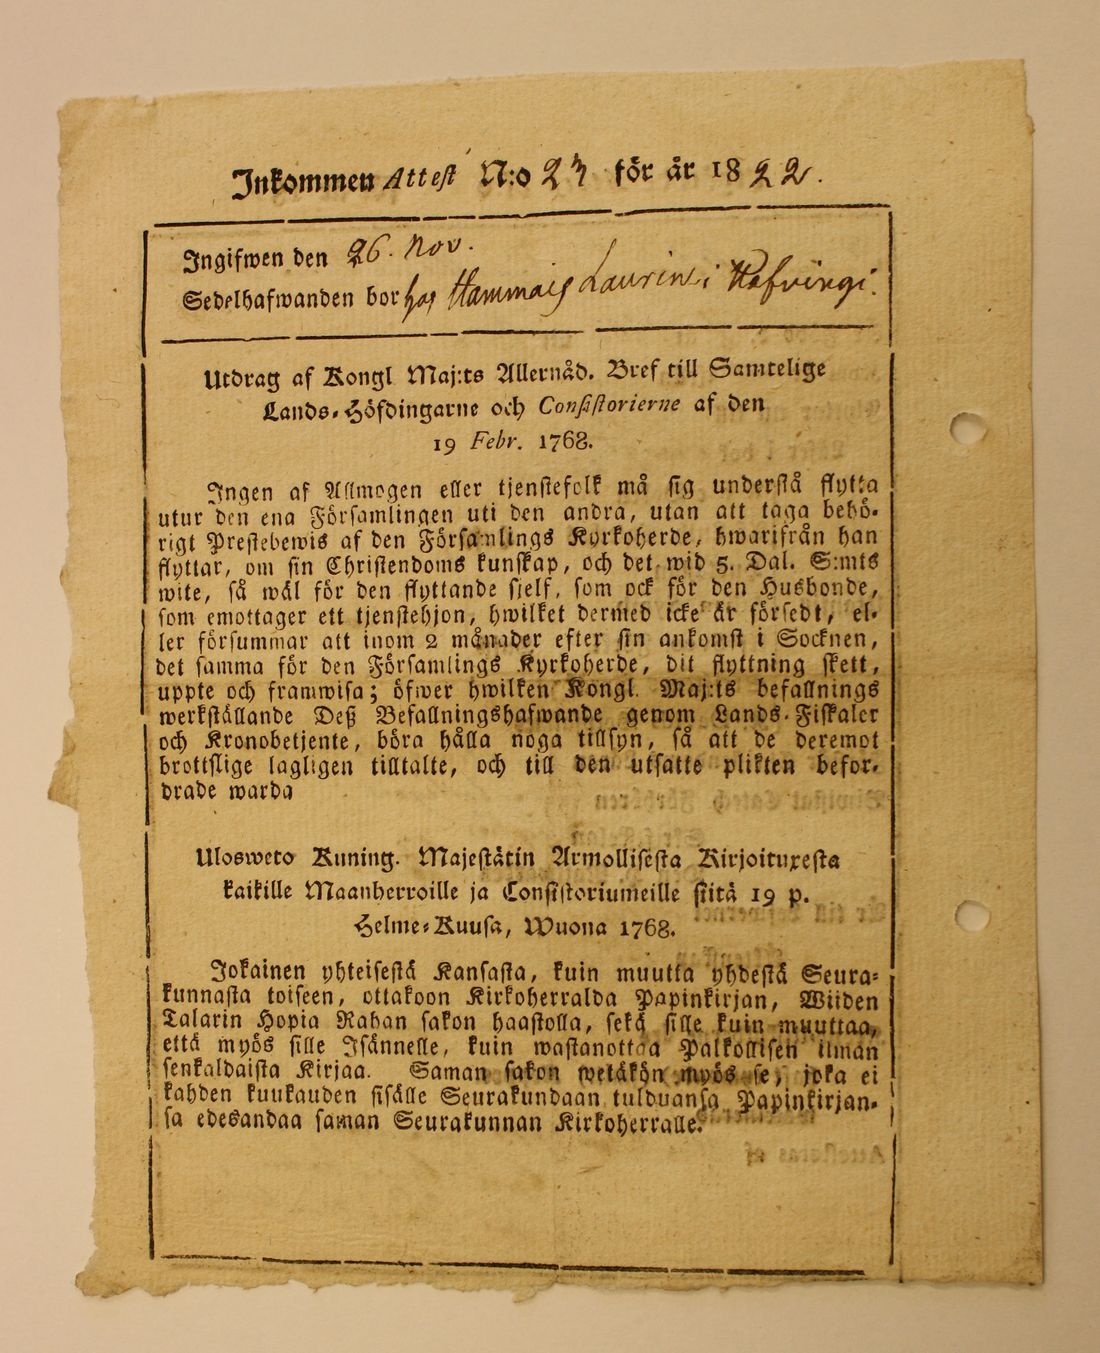 Inkommen Attest N:o 23 för år 1822.
Ingifwen den 26. Nov.
Sedelhafwanden bor hos Laurin i
Utdrag af Kongl Maj:ts Allernåd. Bref till Samtelige
Lands-Höfdingarne och Consistorierne af den
19 Febr. 1768.
Ingen af Allmogen eller tjenstefolk må sig understå flytta
utur den ena Församlingen uti den andra, utan att taga behö-
rigt Prestebewis af den Församlings Kyrkoherde, hwarifrån han
flyttar, om sin Christendoms kunskap, och det wid 5. Dal. S:mts
wite, så wäl för den flyttande sjelf, som ock för den Husbonde,
som emottager ett tjenstehjon, hwilket dermed icke är försedt, el-
ler försummar att inom 2 månader efter sin ankomst i Socknen,
det samma för den Församlings Kyrkoherde, dit flyttning skett,
uppte och framwisa; öfwer hwilken Kongl. Maj:ts befallnings
werkställande Deß Befallningshafwande genom Lands-Fiskaler
och Kronobetjente, böra hålla noga tillsyn, så att de deremot
brottslige lagligen tilltalte, och till den utsatte plikten befor-
drade warda
Ulosweto Kuning. Majestätin Armollisesta Kirjoituxesta
kaikille Maanherroille ja Consistoriumeille siitä 19 p.
Helme-Kuusa, Wuona 1768.
Jokainen yhteisestä Kansasta, kuin muutta yhdestä Seura-
kunnasta toiseen, ottakoon Kirkoherralda Papinkirjan, Wiiden
Talarin Hopia Rahan sakon haastolla, sekä sille kuin muuttaa,
että myös sille Isännelle, kuin wastanottaa Palkollisen ilman
senkaldaista Kirjaa. Saman sakon wetäkön myös se, joka ei
kahden kuukauden sisälle Seurakundaan tulduansa Papinkirjan-
sa edesandaa saman Seurakunnan Kirkoherralle.